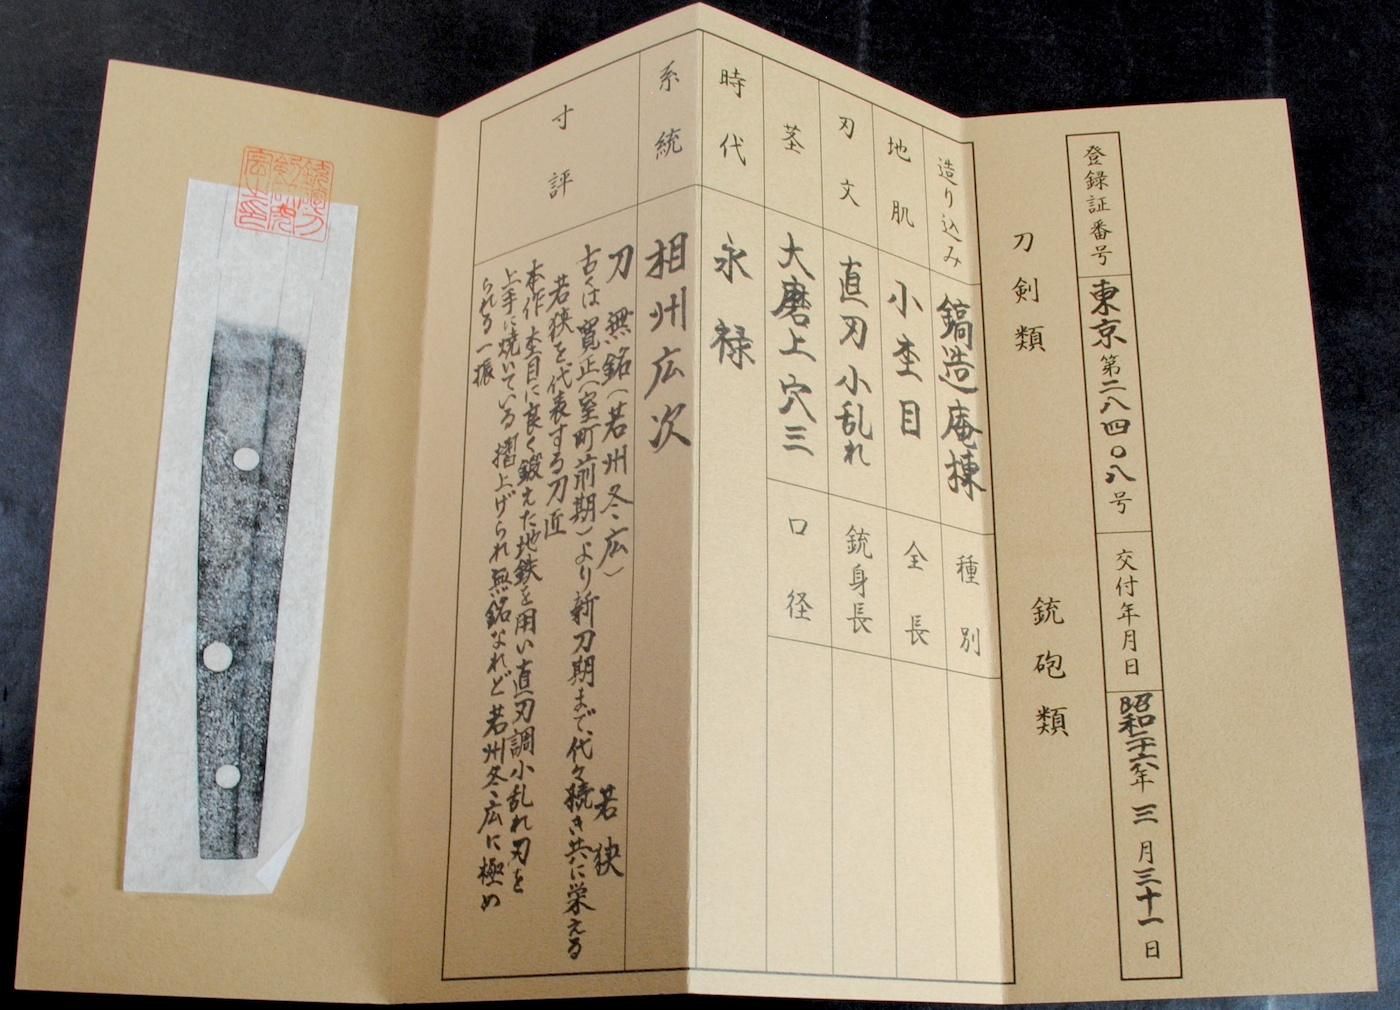 登録証番号 東京第二八四〇八号 交付年月日 昭和二十六年三月三十一日
刀剣類 銃砲類
造り込み 鎬造庵棟 種別
地肌 小杢目 全長
刃文 直刃小乱れ 銃身長
茎 大磨上穴三 口径
時代 永禄
系統 相州広次
寸評
刀 無銘(若州冬広) 若狭
古くは寛正(室町前期)より新刀期まで、代々続き共に栄える
若狭を代表する刀匠
本作 杢目に良く鍛えた地鉄を用い直刃調小乱れ刃を
上手に焼いている 摺上げられ無銘なれど若州冬広に極め
られる一振